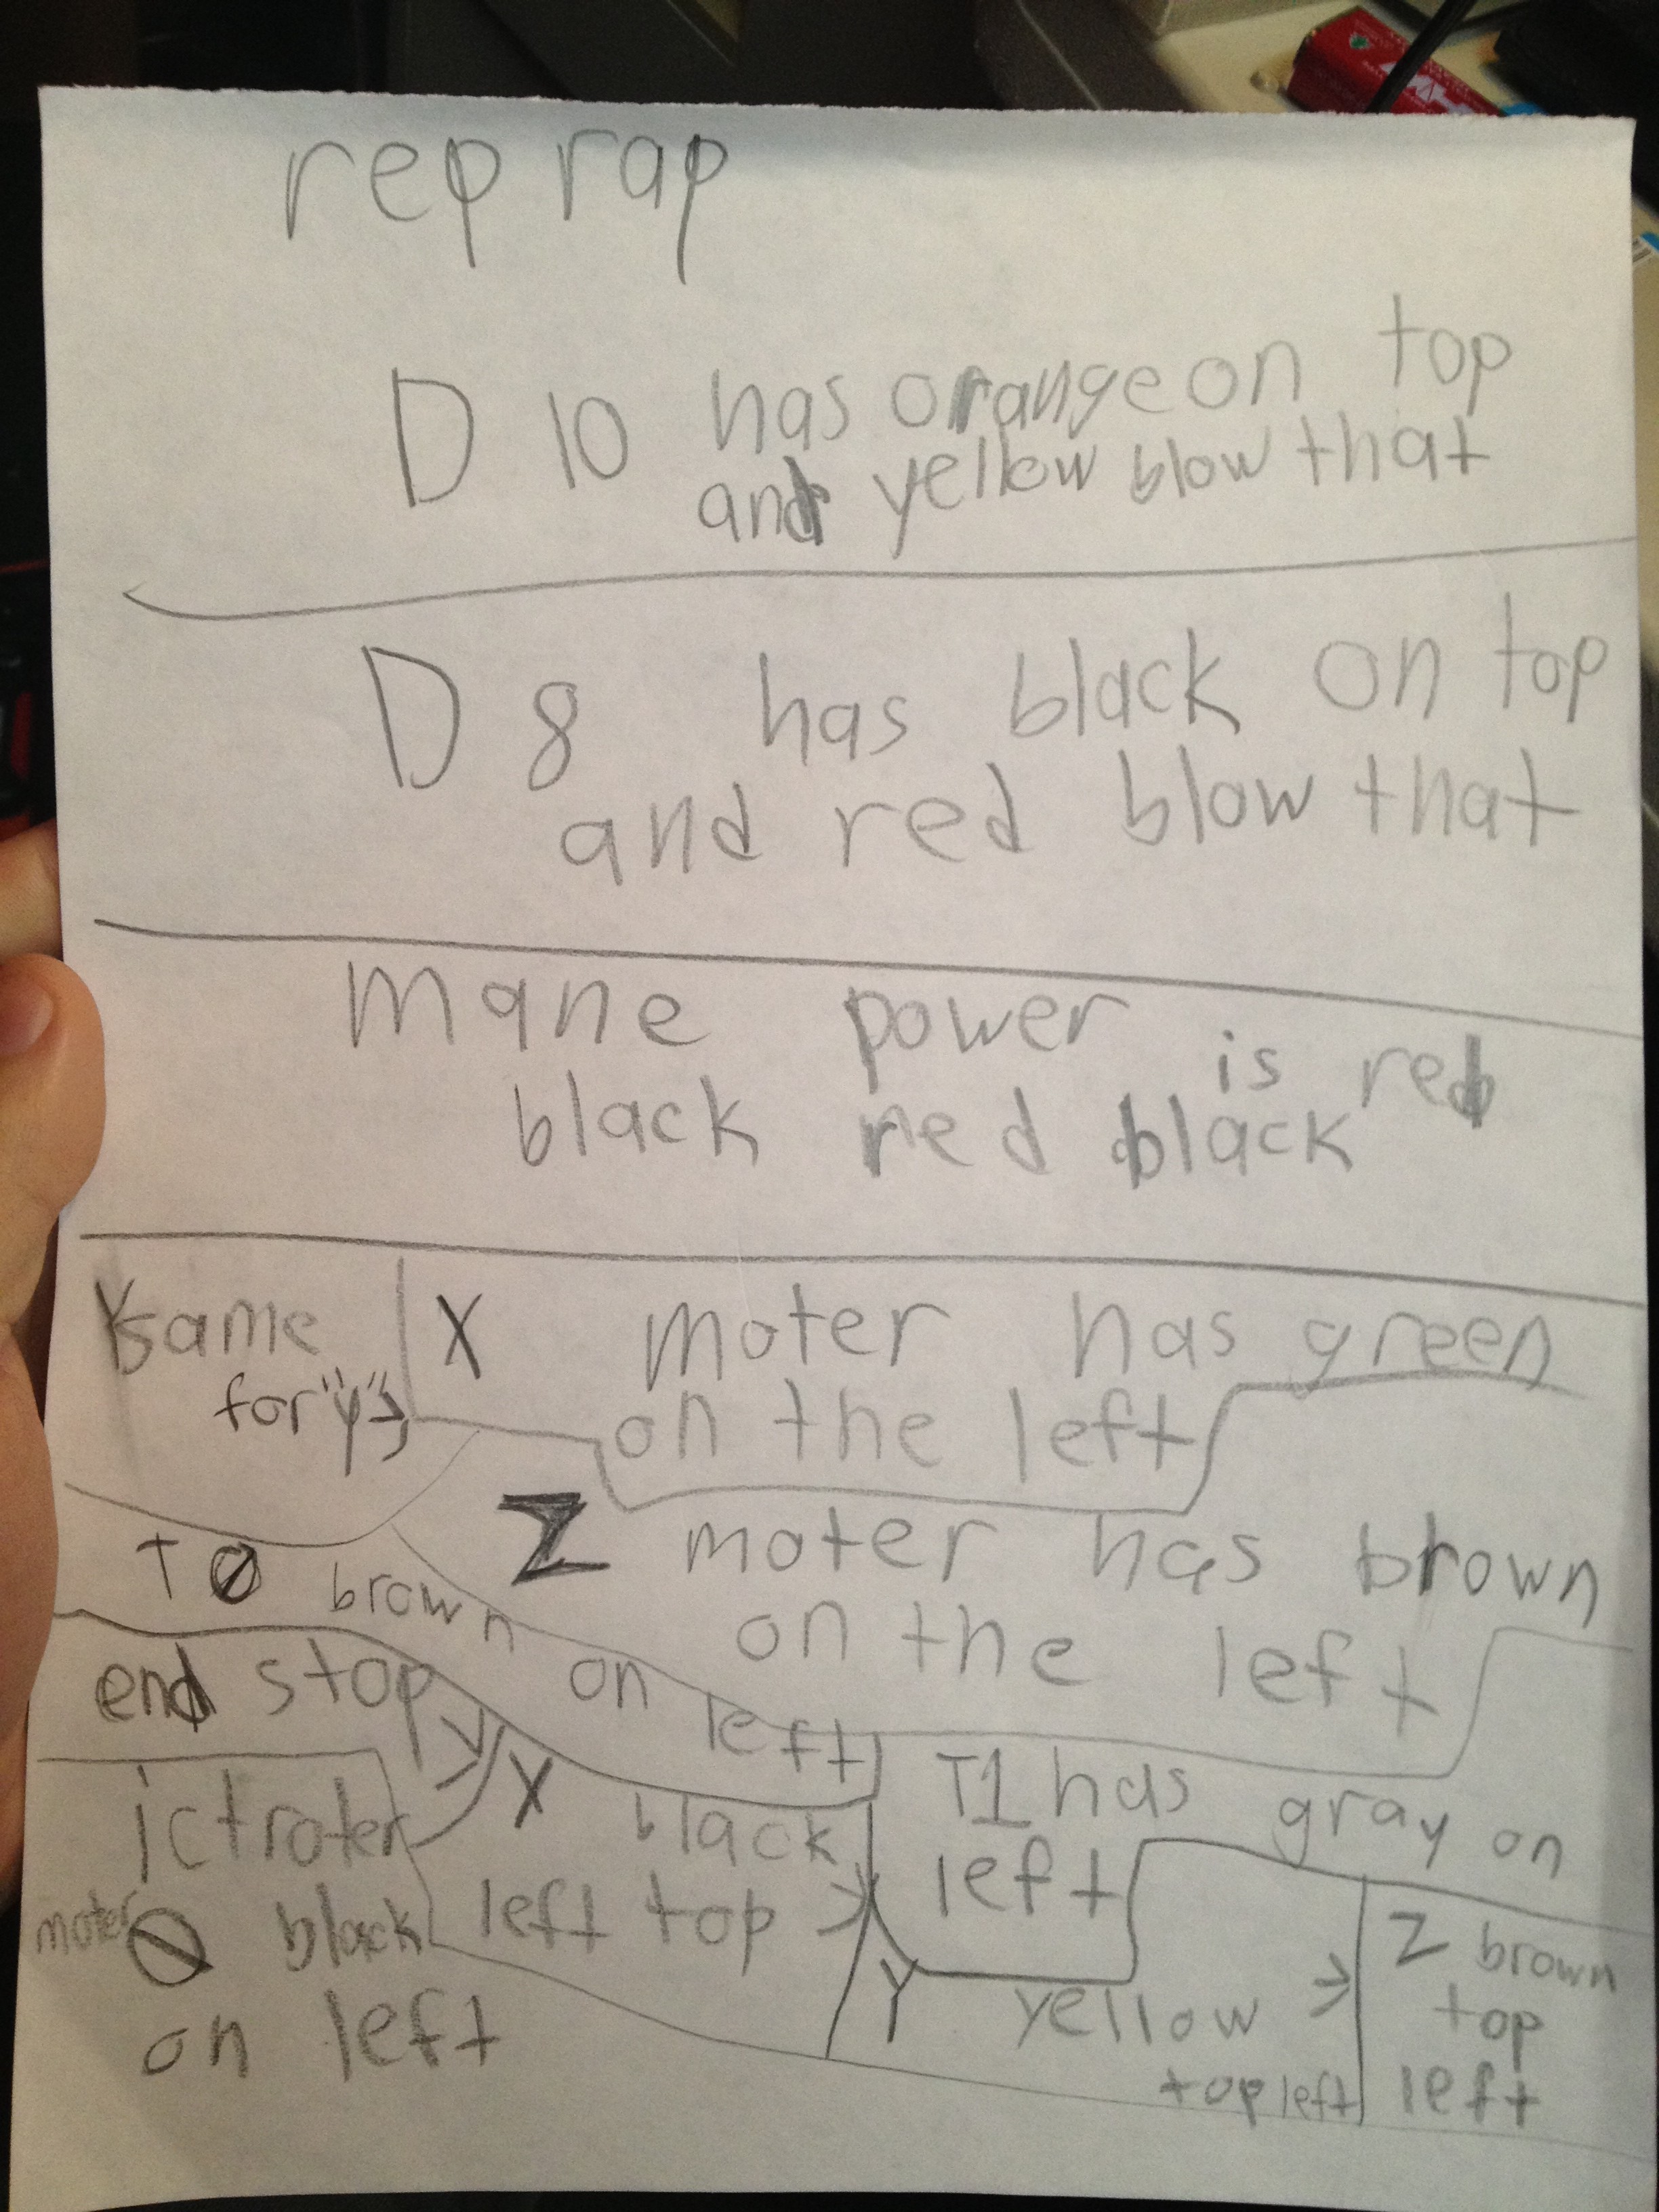 rep rap
D 10 has orange on top
and yellow blow that
D 8 has black on top
and red blow that
mane power is red
black red black
Ysame
for "y"
X moter has green
on the left
Z moter has brown
on the left
T0 brown on left
end stop
X black
left top
T1 has gray on
left
Y yellow
top left
Z brown
top
left
ictroter
moter 0 black
on left